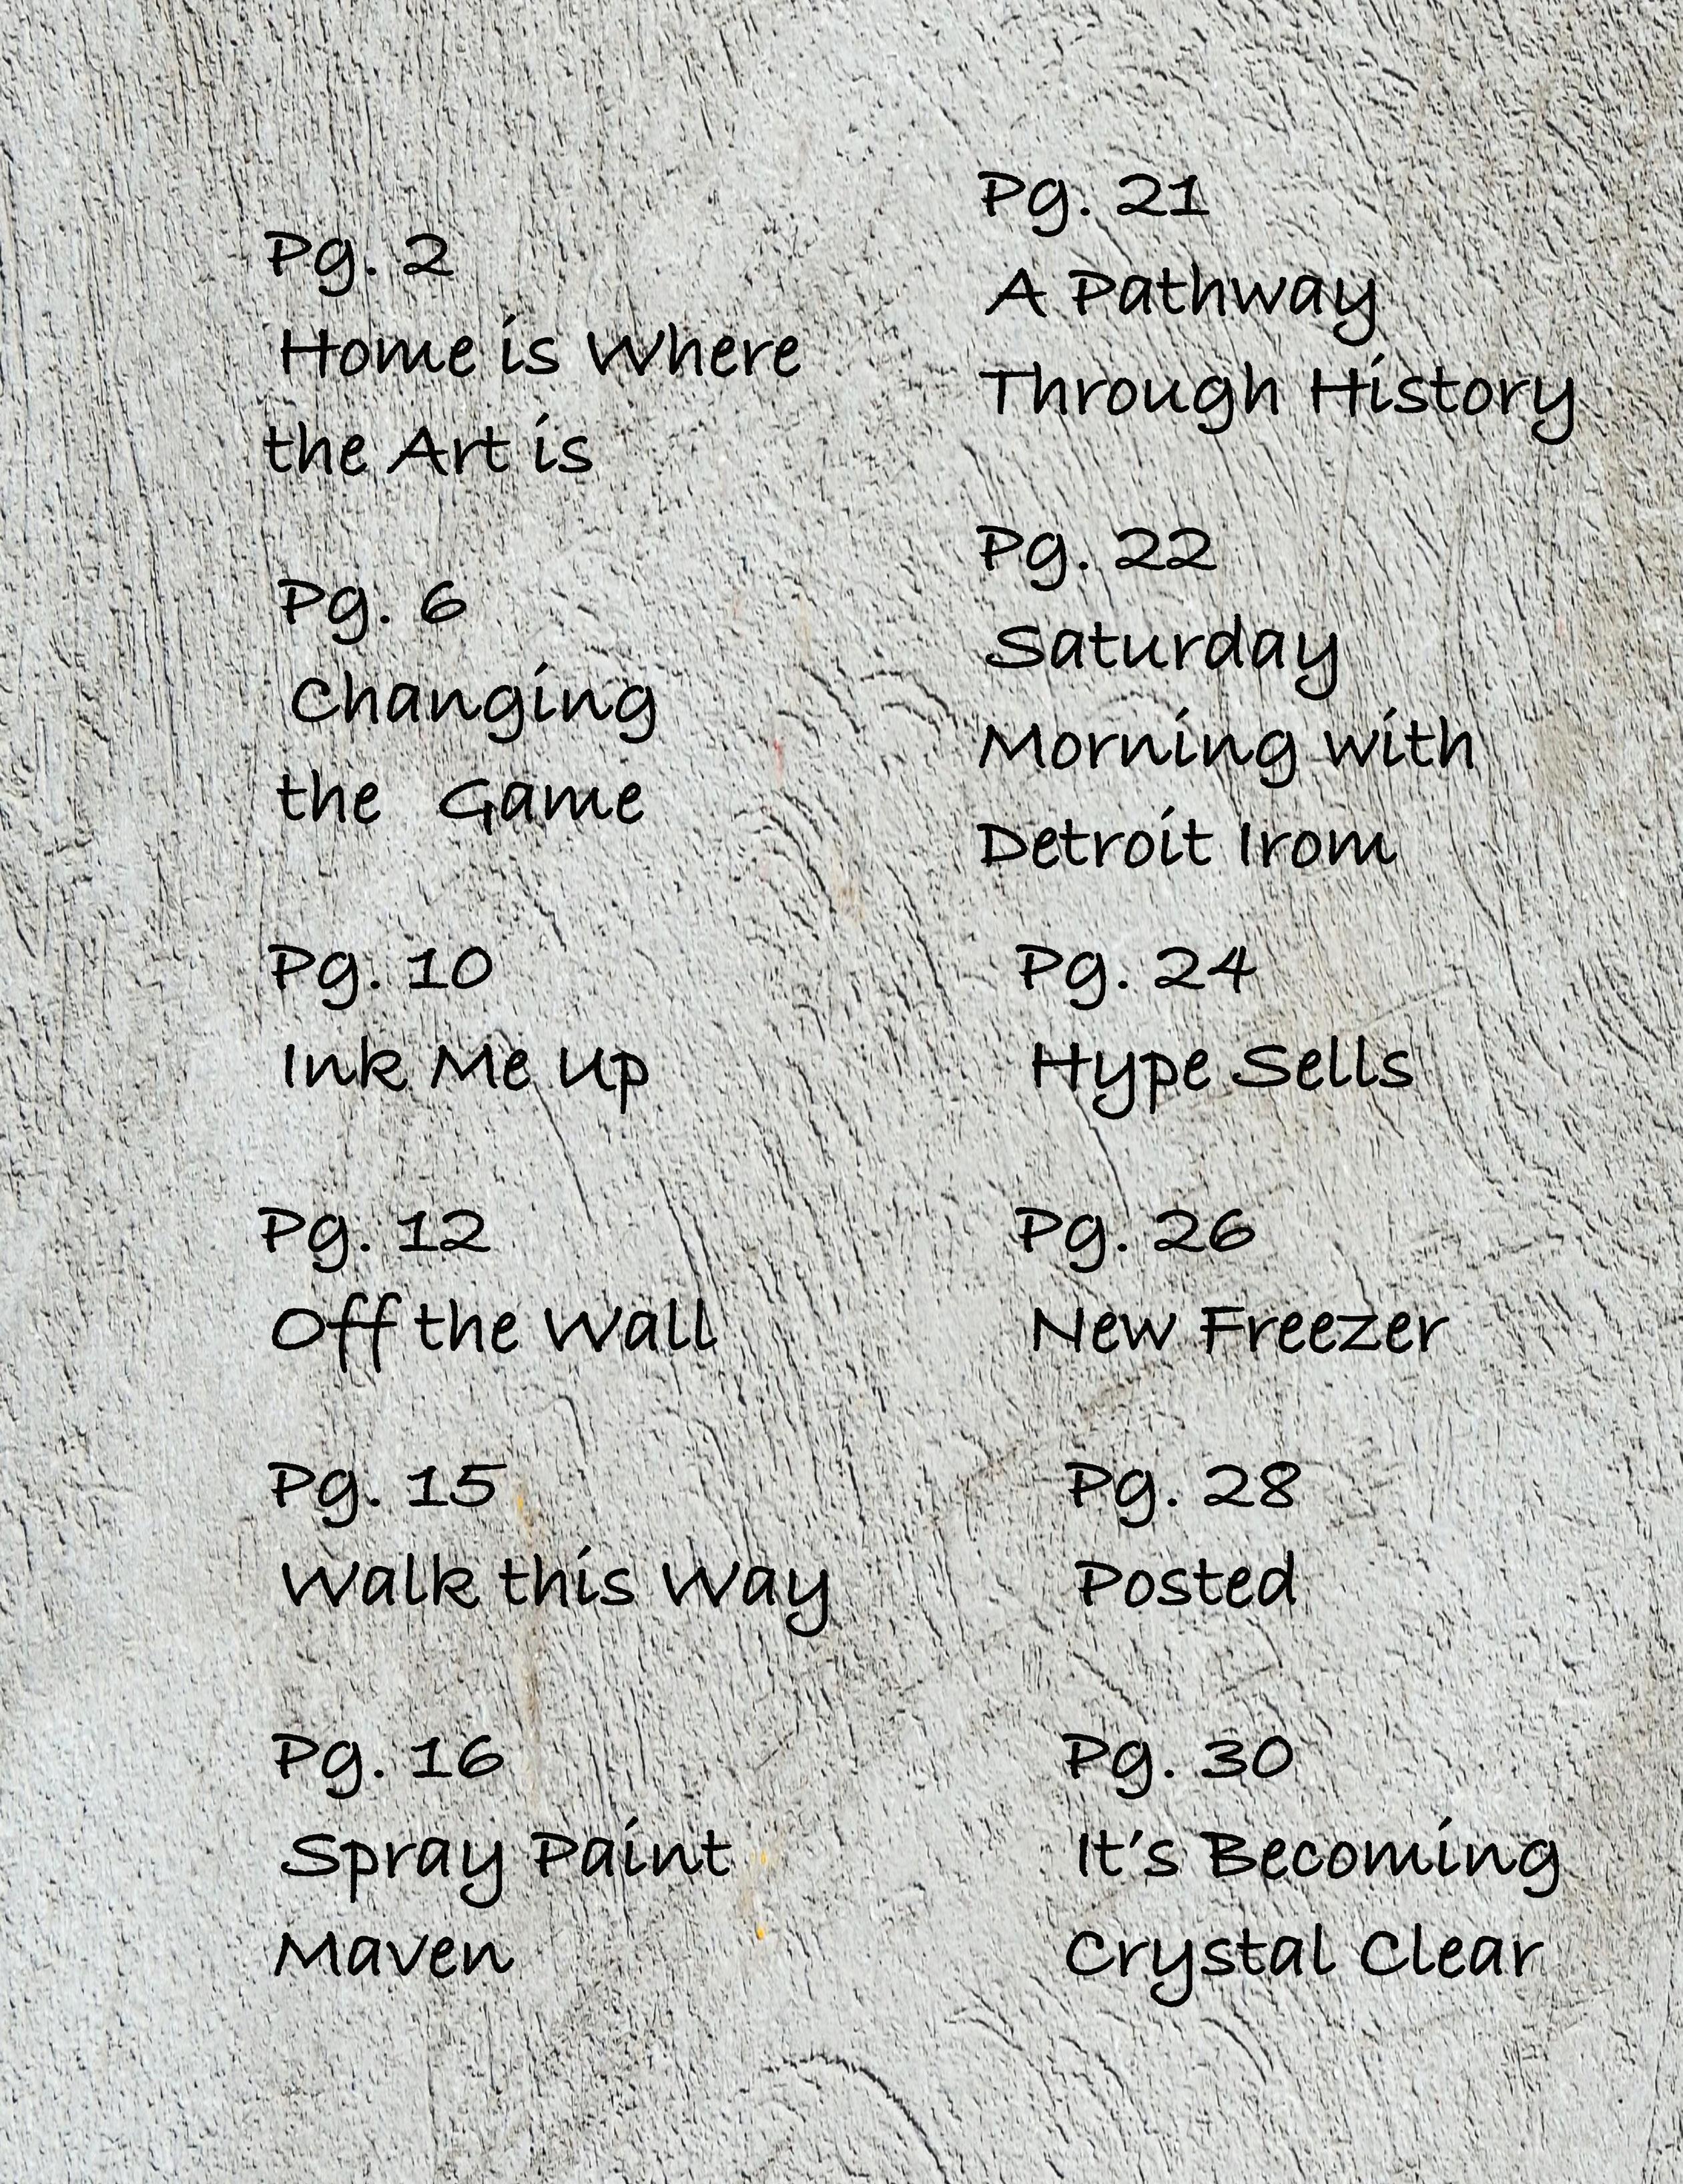 Pg. 2
Home is Where
the Art is
Pg. 6
Changing
the Game
Pg. 10
Ink Me Up
Pg. 12
Off the Wall
Pg. 15
Walk this Way
Pg. 16
Spray Paint
Maven
Pg. 21
A Pathway
Through History
Pg. 22
Saturday
Morning with
Detroit Irom
Pg. 24
Hype Sells
Pg. 26
New Freezer
Pg. 28
Posted
Pg. 30
It's Becoming
Crystal Clear